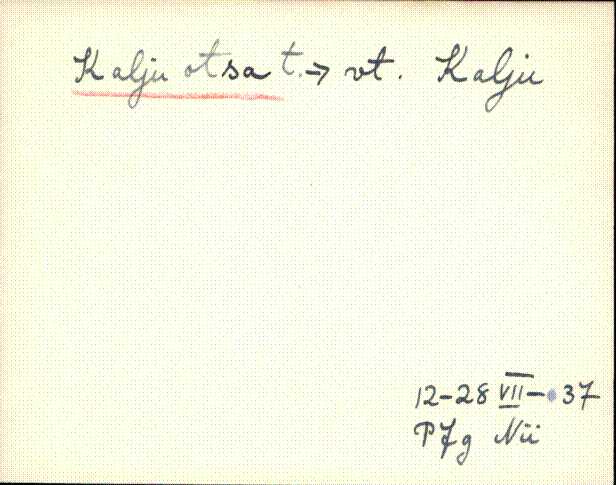 Kalju otsa t. → vt. Kalju
12-28 VII - 37
PJg Nii